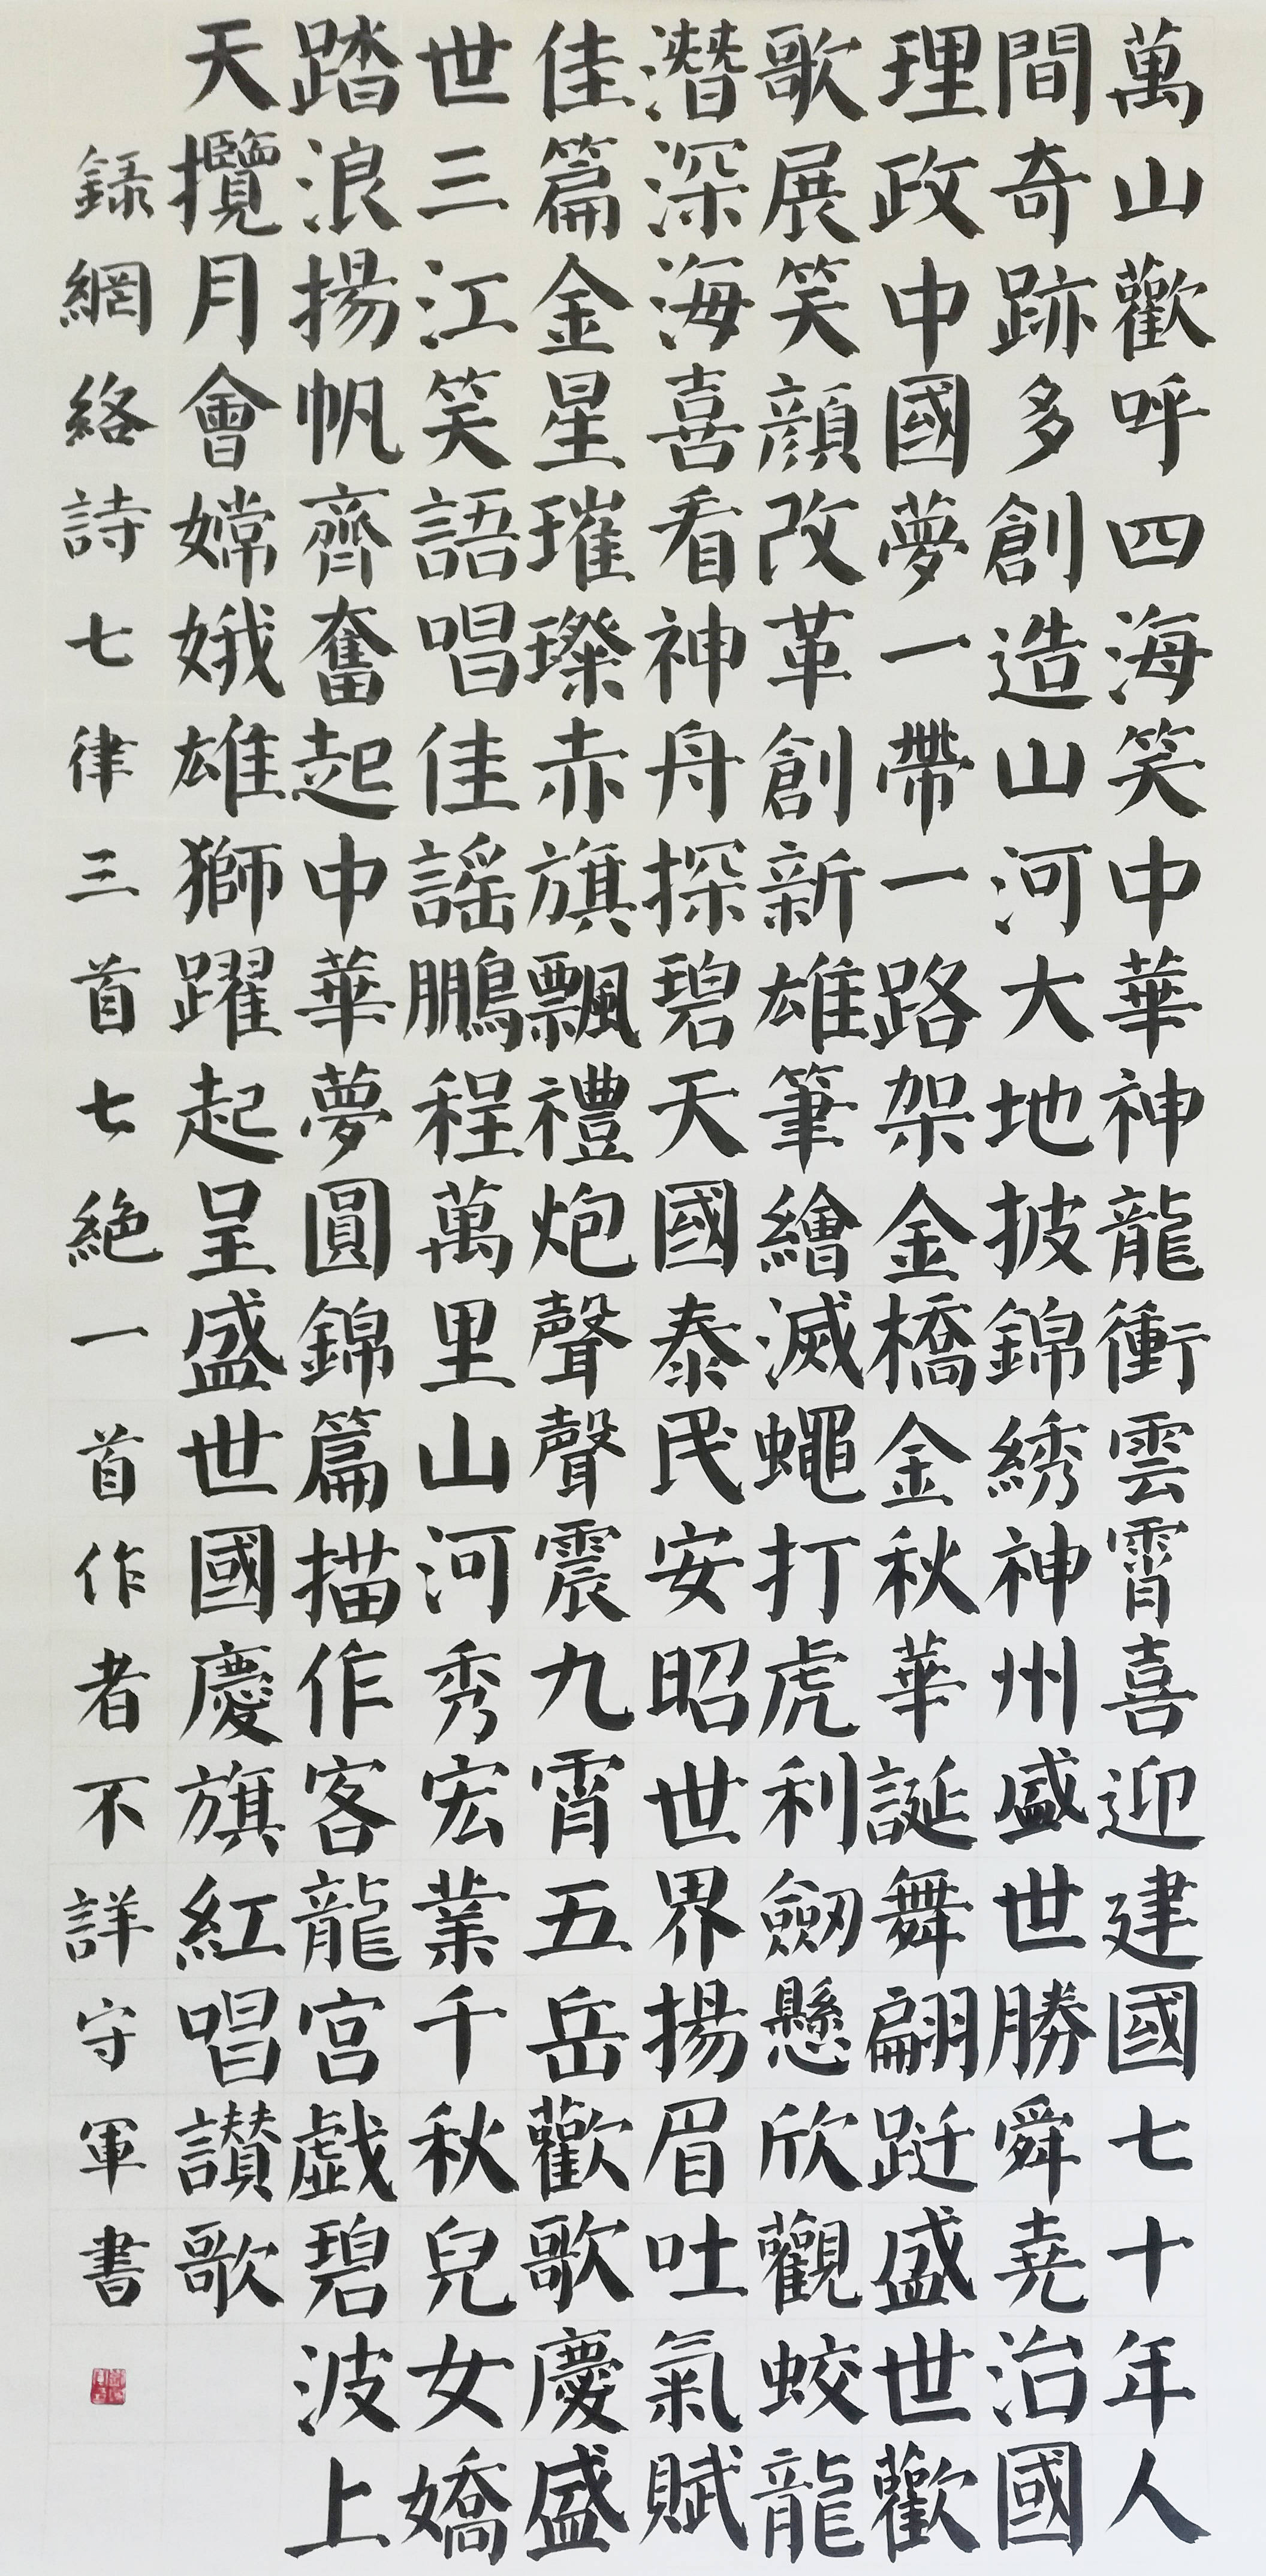 萬山歡呼四海笑中華神龍衝雲霄喜迎建國七十年人
間奇跡多創造山河大地披錦綉神州盛世勝舜堯治國
理政中國夢一帶一路架金橋金秋華誕舞翩跹盛世歡
歌展笑顔改革創新雄筆繪滅蠅打虎利劔懸欣觀蛟龍
潛深海喜看神舟探碧天國泰民安昭世界揚眉吐氣賦
佳篇金星璀璨赤旗飄禮炮聲聲震九霄五岳歡歌慶盛
世三江笑語唱佳謡鵬程萬里山河秀宏業千秋兒女嬌
踏浪揚帆齊奮起中華夢圓錦篇描作客龍宮戯碧波上
天攬月會嫦娥雄獅躍起呈盛世國慶旗紅唱讃歌
録網絡詩七律三首七絶一首作者不詳守軍書